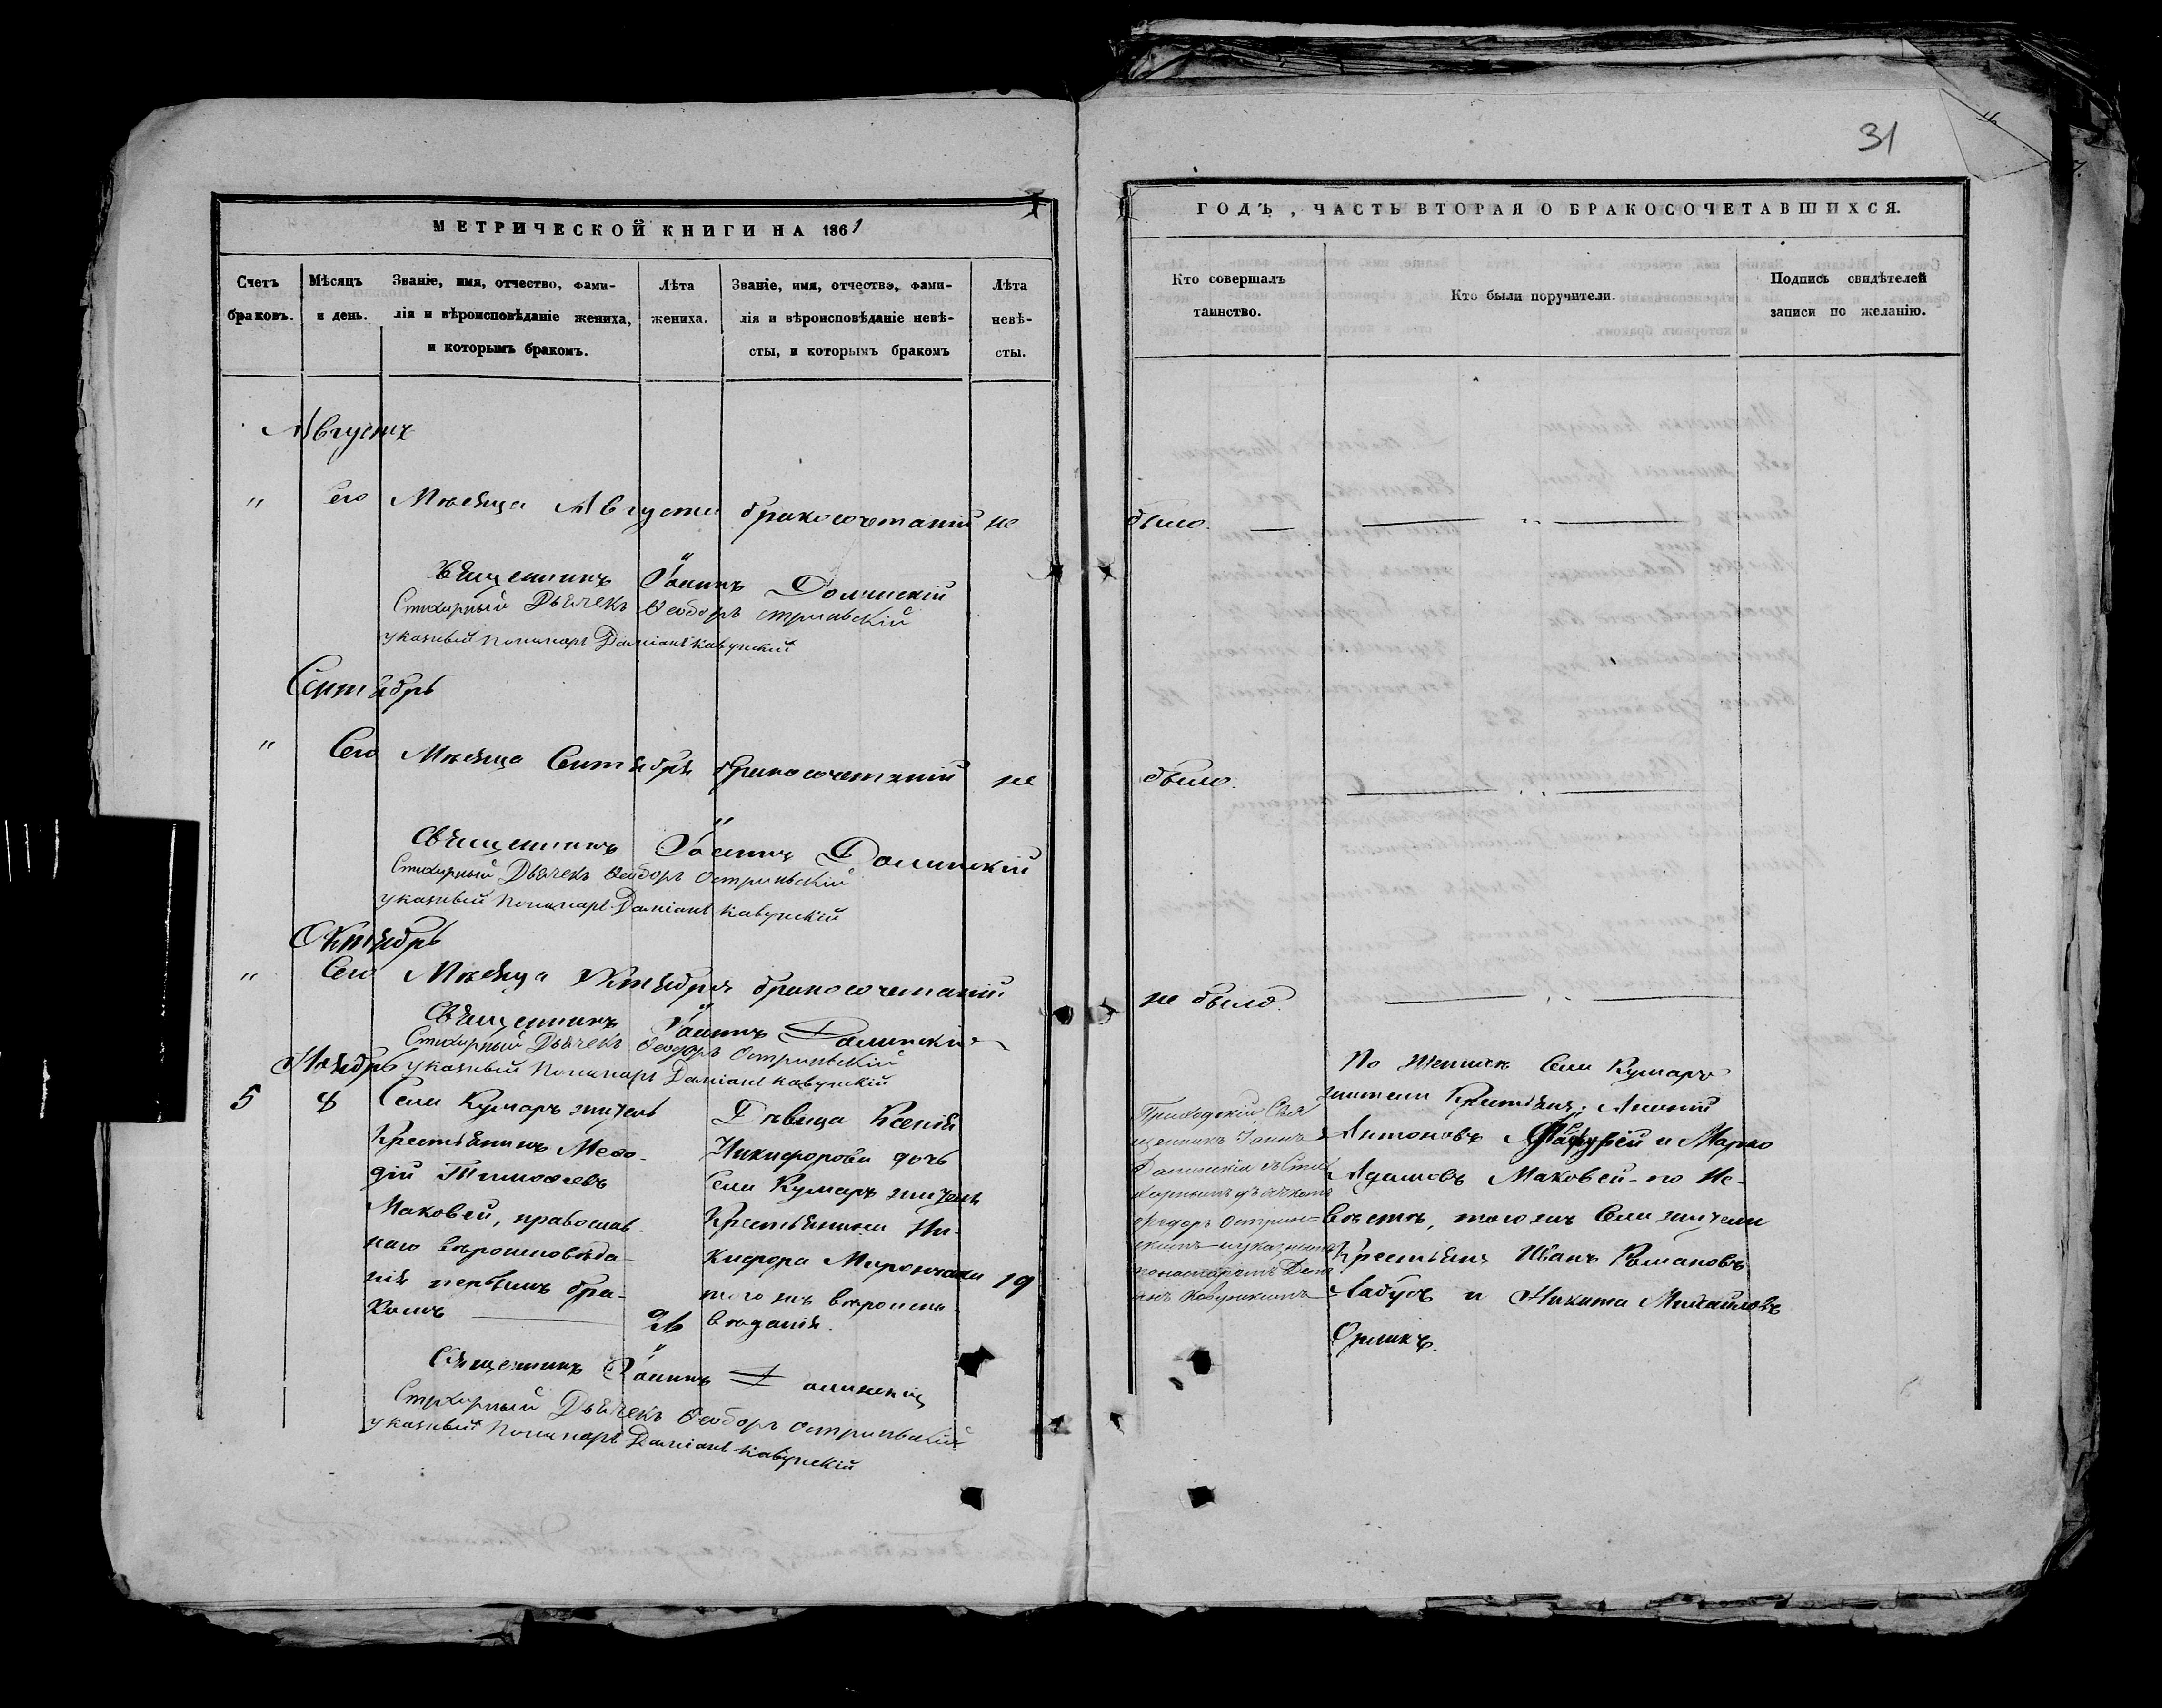 31
МЕТРИЧЕСКОЙ КНИГИ НА 1861
Счетъ браковъ.
Мѣсяцъ и день.
Званіе, имя, отчество, фами-
лія и вѣроисповѣданіе жениха,
и которымъ бракомъ.
Лѣта жениха.
Званіе, имя, отчество, фами-
лія и вѣроисповѣданіе невѣ-
сты, и которымъ бракомъ
Лѣта невѣ-
сты.
ГОДЪ, ЧАСТЬ ВТОРАЯ О БРАКОСОЧЕТАВШИХСЯ.
Кто совершалъ
таинство.
Кто были поручители.
Подпись свидѣтелей
записи по желанію.
Августъ
" Сего Мѣсяца Августа бракосочетаній не было.
Священникъ Іоаннъ Долинскій
Стихарный Дьячекъ Ѳеодоръ Острипьскій
указный Пономарь Даміанъ Кавунскій
Сентябрь
" Сего Мѣсяца Сентября бракосочетаній не было.
Священникъ Іоаннъ Долинскій
Стихарный Дьячекъ Ѳеодоръ Острипьскій
указный Пономарь Даміанъ Кавунскій
Октябрь
" Сего Мѣсяца Октября бракосочетаній не было.
Священникъ Іоаннъ Долинскій
Стихарный Дьячекъ Ѳеодоръ Острипьскій
указный Пономарь Даміанъ Кавунскій
Ноябрь
5
8
Села Кумаръ житель
Крестьянинъ Меѳо-
дій Тимоѳеевъ
Маковей, православ-
наго вѣроисповѣда-
нія первымъ бра-
комъ
Дѣвица Ксенія
Никифорова дочь
Села Кумаръ житель
Крестьянина Ни-
кифора Мирончака
того жъ вѣроиспо-
вѣданія.
19
Приходскій Свя
щенникъ Іоаннъ
Долинскій съ Сти
харнымъ дьячкомъ
По Женихѣ Села Кумаръ
жители Крестьяне:
Антоновъ и Марко
Адамовъ Маковей - по Не-
вѣстѣ, того жъ Села жители
Крестьяне Иванъ Романовъ
Лабусь и Никита Михайловъ
Орликъ.
Священникъ Іоаннъ Долинскій
Стихарный Дьячекъ Ѳеодоръ Острипьскій
указный Пономарь Даміанъ Кавунскій